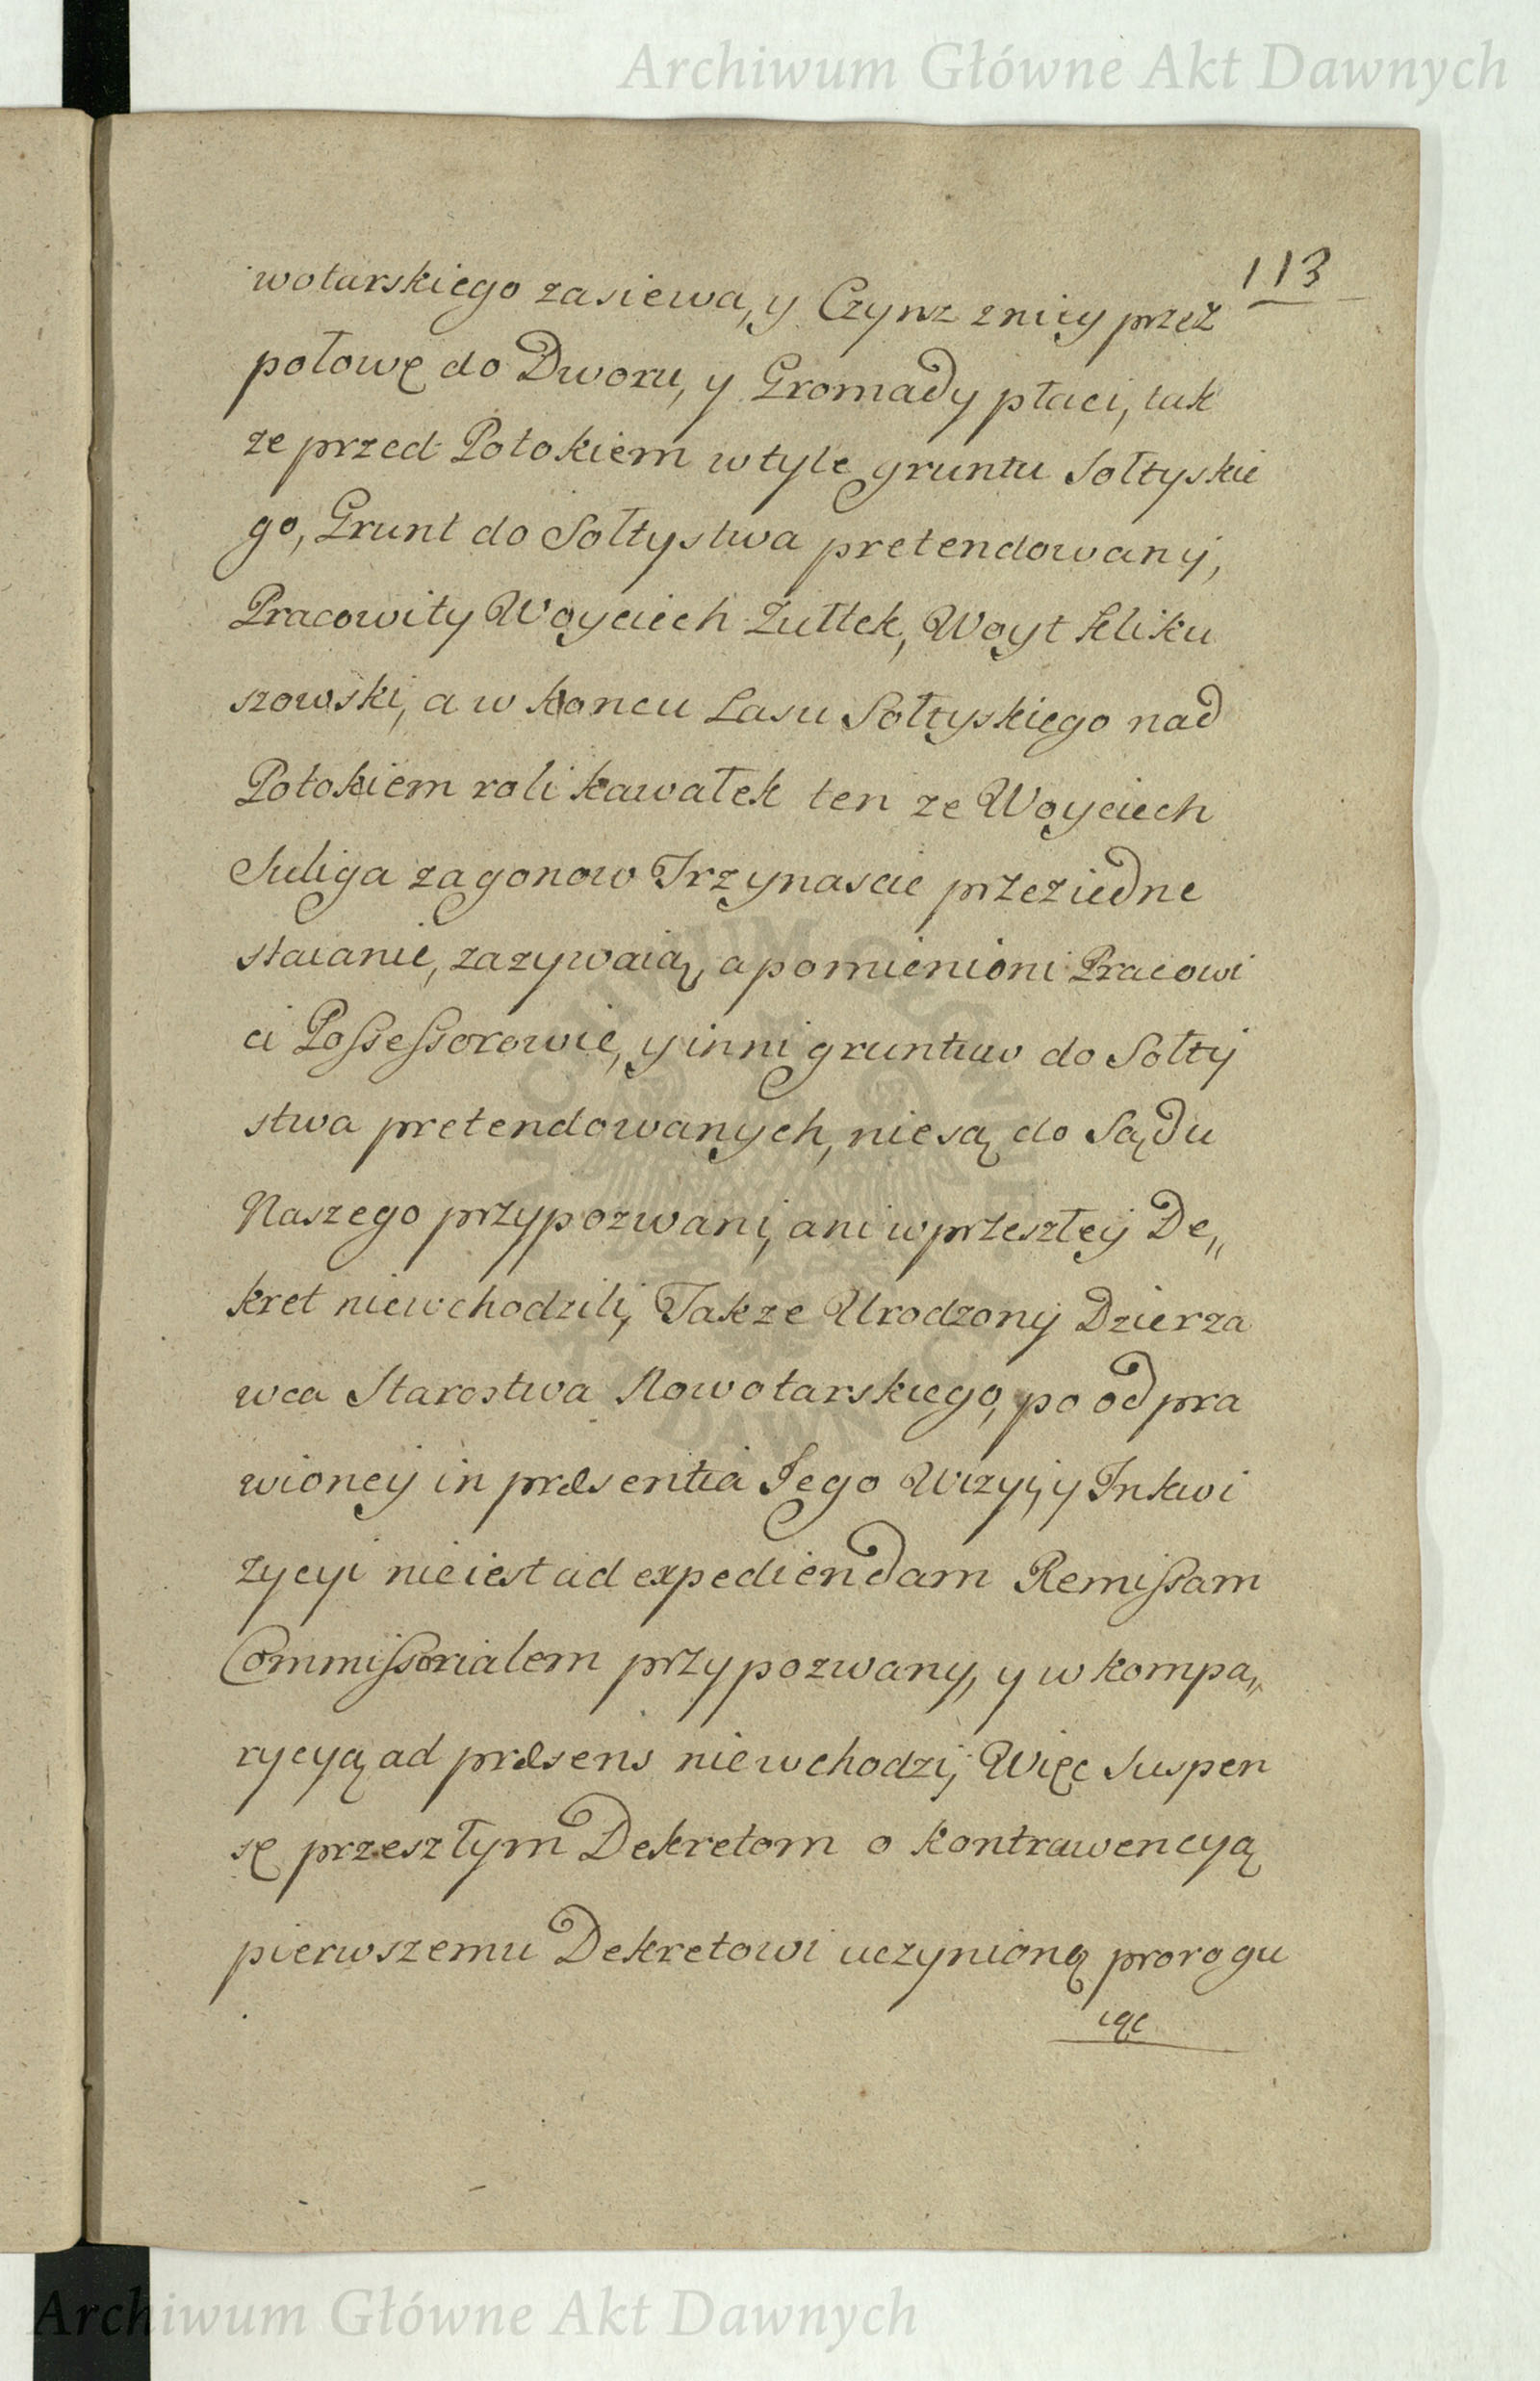 Archiwum Główne Akt Dawnych
113
wotarskiego zasiewa, y Czynsz zniey przez
połowę do Dworu, y Gromady płaci, tak
ze przed Potokiem wtyle gruntu Sołtyskie
go, Grunt do Sołtystwa pretendowany,
Pracowity Woyciech Zułtek, Woyt Kliku
szowski, a w koncu Lasu Sołtyskiego nad
Potokiem roli kawałek ten ze Woyciech
Suliga zagonow Trzynascie przeziedne
staianie, zazywaią, a pomienioni Pracowi
ci Possessorowie, y inni gruntuw do Sołty
stwa pretendowanych, niesą do Sądu
Naszego przypozwani, ani wprzeszłey De„
kret niewchodzili, Takze Urodzony Dzierza
wca Starostwa Nowotarskiego, po odpra
wioney in præsentia Jego Wizyi, y Inkwi
zycyi nieiest ad expediendam Remissam
Commissorialem przypozwany, y w kompa„
rycyą ad præsens niewchodzi, Więc Suspen
sę przeszłym Dekretom o kontrawencyą
pierwszemu Dekretowi uczynioną prorogu
iąc
Archiwum Główne Akt Dawnych